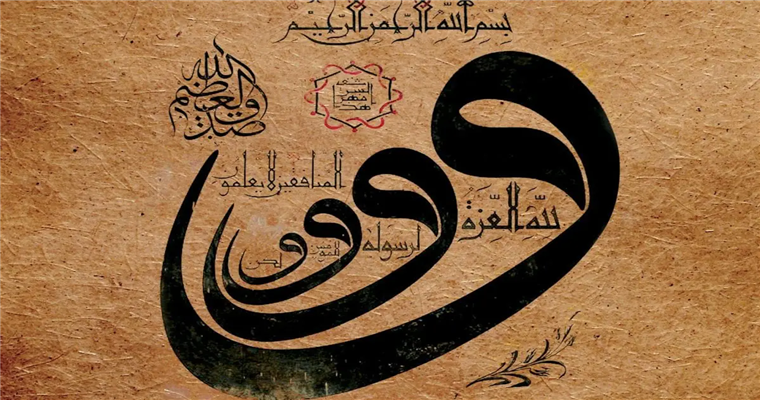 بِسْمِ اللَّهِ الرَّحْمَنِ الرَّحِيْمْ
صدق الله العظيم
و لِلَّهِ الْعِزَّةُ
و لرسوله
و للمؤمنين
و لكن
المنافقين لا يعلمون